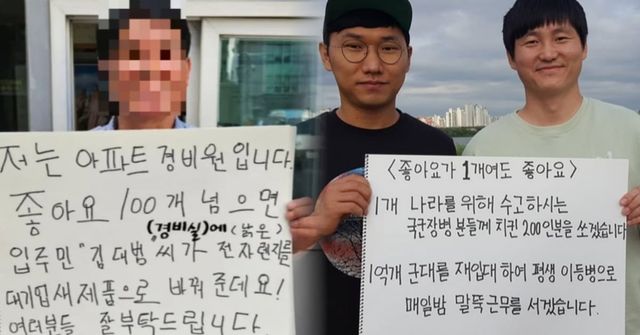 저는 아파트 경비원입니다.
좋아요 100개 넘으면
(경비실)에 <낡은>
입주민 "김대범 씨가 전자렌지를
대기업새제품으로 바꿔 준데요!
여러분들 잘부탁드립니다.
<좋아요가 1개여도 좋아요>
1개 나라를 위해 수고하시는
국군장병 분들께 치킨 200인분을 쏘겠습니다
1억개 군대를 재입대 하여 평생 이등병으로
매일밤 말뚝근무를 서겠습니다.